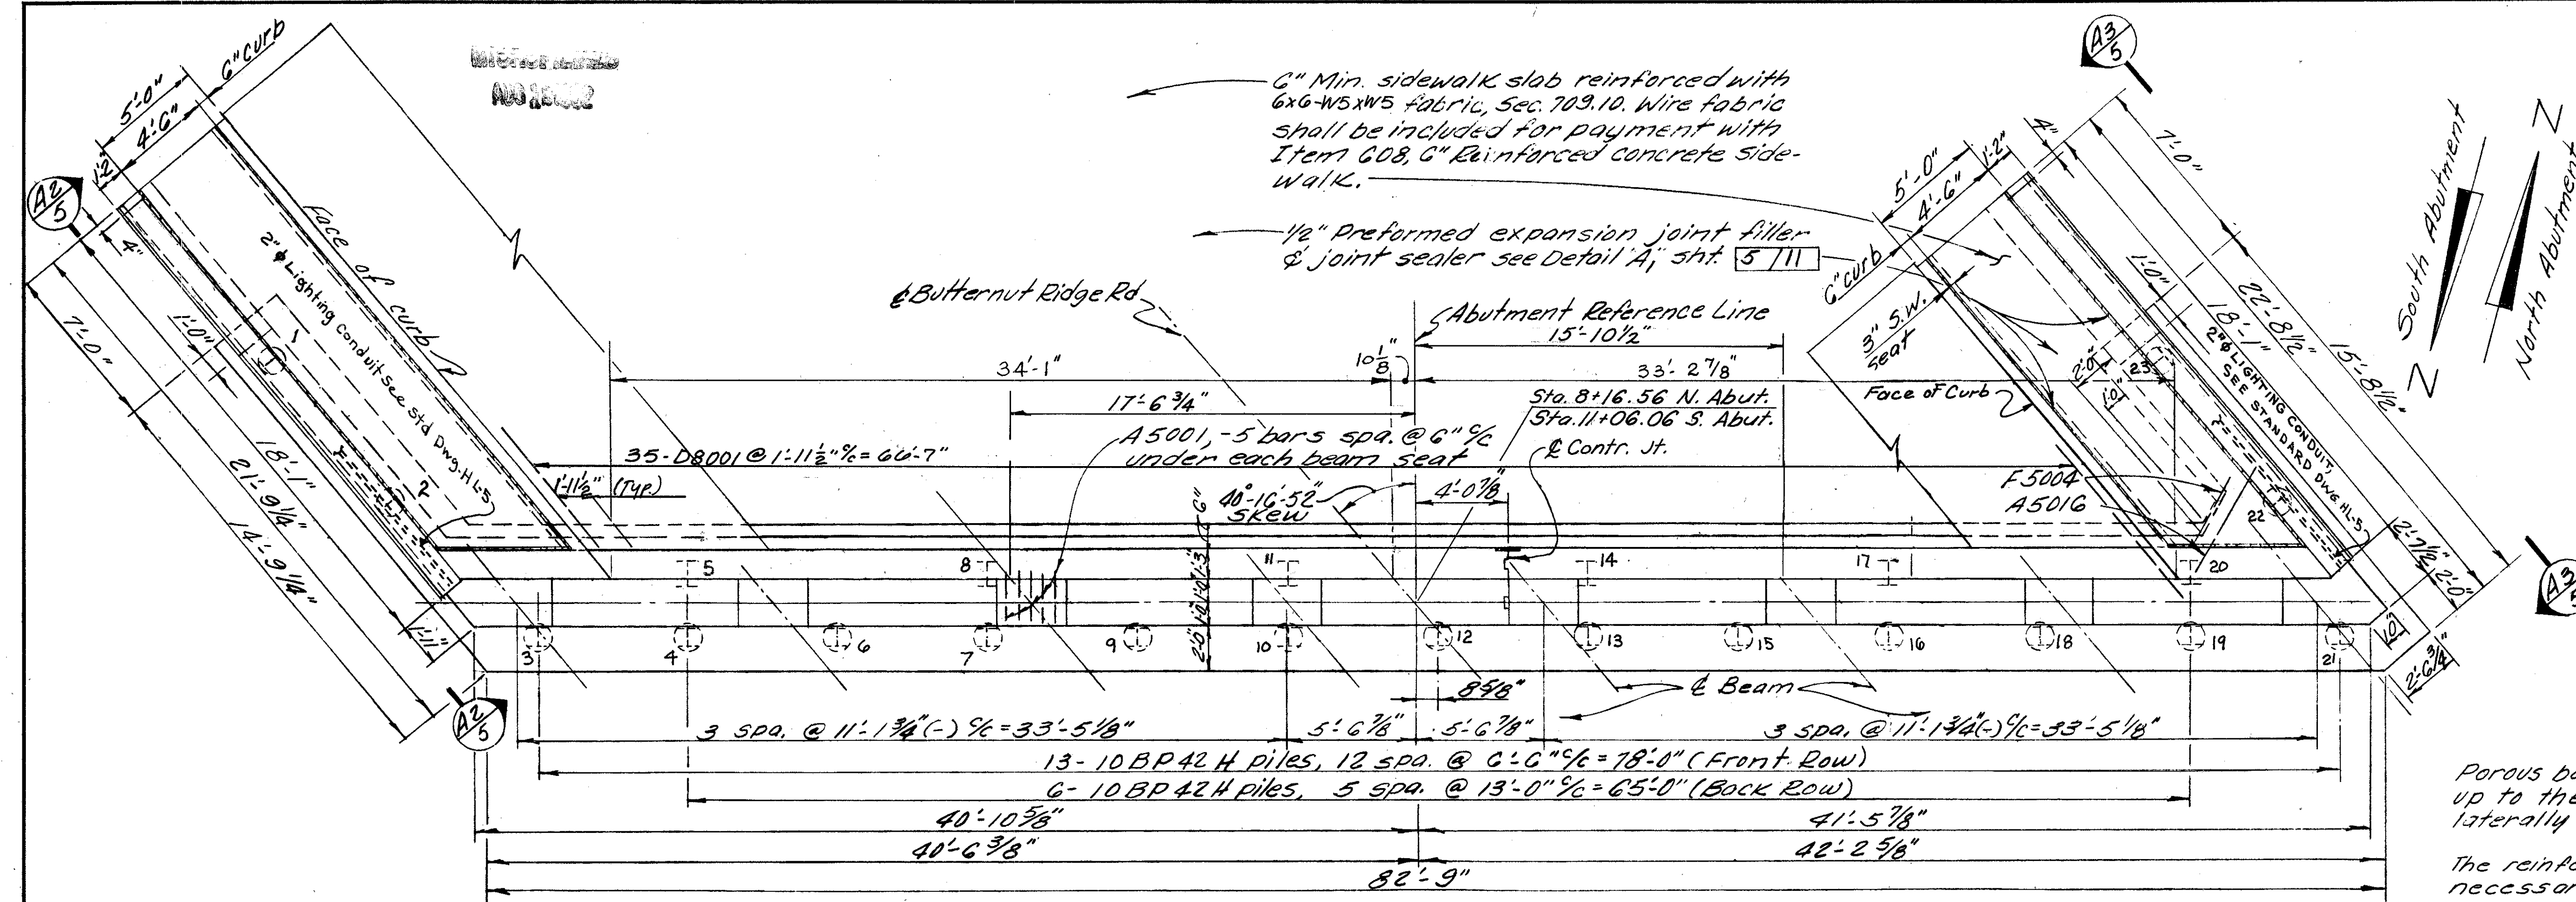 6" curb
5'-0"
4'-6"
1'-2"
A2
5
4"
7'-0"
1'-0"
18'-1"
21'-9 1/4"
14'-9 1/4"
1'-11"
A2
5
Face of curb
2" ϕ Lighting Conduit See Std Dwg. HL-5
1
2
6" Min. sidewalk slab reinforced with
6x6-W5xW5 fabric, Sec. 709.10. Wire fabric
shall be included for payment with
Item 608, 6" Reinforced concrete side-
walk.
1/2" Preformed expansion joint filler
& joint sealer see Detail 'A', sht. 5/11
℄ Butternut Ridge Rd
Abutment Reference Line
15'-10 1/2"
34'-1"
10 1/8"
33'-2 7/8"
17'-6 3/4"
Sta. 8+16.56 N. Abut.
Sta. 11+06.06 S. Abut.
A5001,-5 bars spa. @ 6" c/c
under each beam seat
℄ Contr. Jt.
35-D8001 @ 1'-11 1/2" c/c = 66'-7"
1'-11 1/2" (Typ.)
40°-16'-52"
Skew
4'-0 7/8
6"
1'-3"
1'-0"
1'-0"
2'-0"
A3
5
4"
7'-0"
5'-0"
1'-2"
4'-6"
6" curb
3" S.W.
seat
Face of Curb
1'-0"
18'-1"
22'-8 1/2"
15'-8 1/2"
2'-0"
1'-0"
23
2" ϕ LIGHTING CONDUIT,
SEE STANDARD DWG HL-5
F5004
A5016
22
2'-7 1/2"
2'-0"
1'-0"
2'-6 3/4"
A3
South Abutment
North Abutment
Z
Z
5
8
11
14
17
20
3
4
6
7
9
10
12
13
15
16
18
19
21
8 5/8"
℄ Beam
3 spa. @ 11'-1 3/4" (-) c/c = 33'-5 1/8"
5'-6 7/8"
5'-6 7/8"
3 spa. @ 11'-1 3/4" (-) c/c = 33'-5 1/8"
13- 10 BP 42 H piles, 12 spa. @ 6'-6" c/c = 78'-0" (Front Row)
6- 10 BP 42 H piles, 5 spa. @ 13'-0" c/c = 65'-0" (Back Row)
40'-10 5/8"
41'-5 7/8"
40'-6 3/8"
42'-2 5/8"
82'-9"
Porous ba
up to the
laterally
The reinfo
necessar